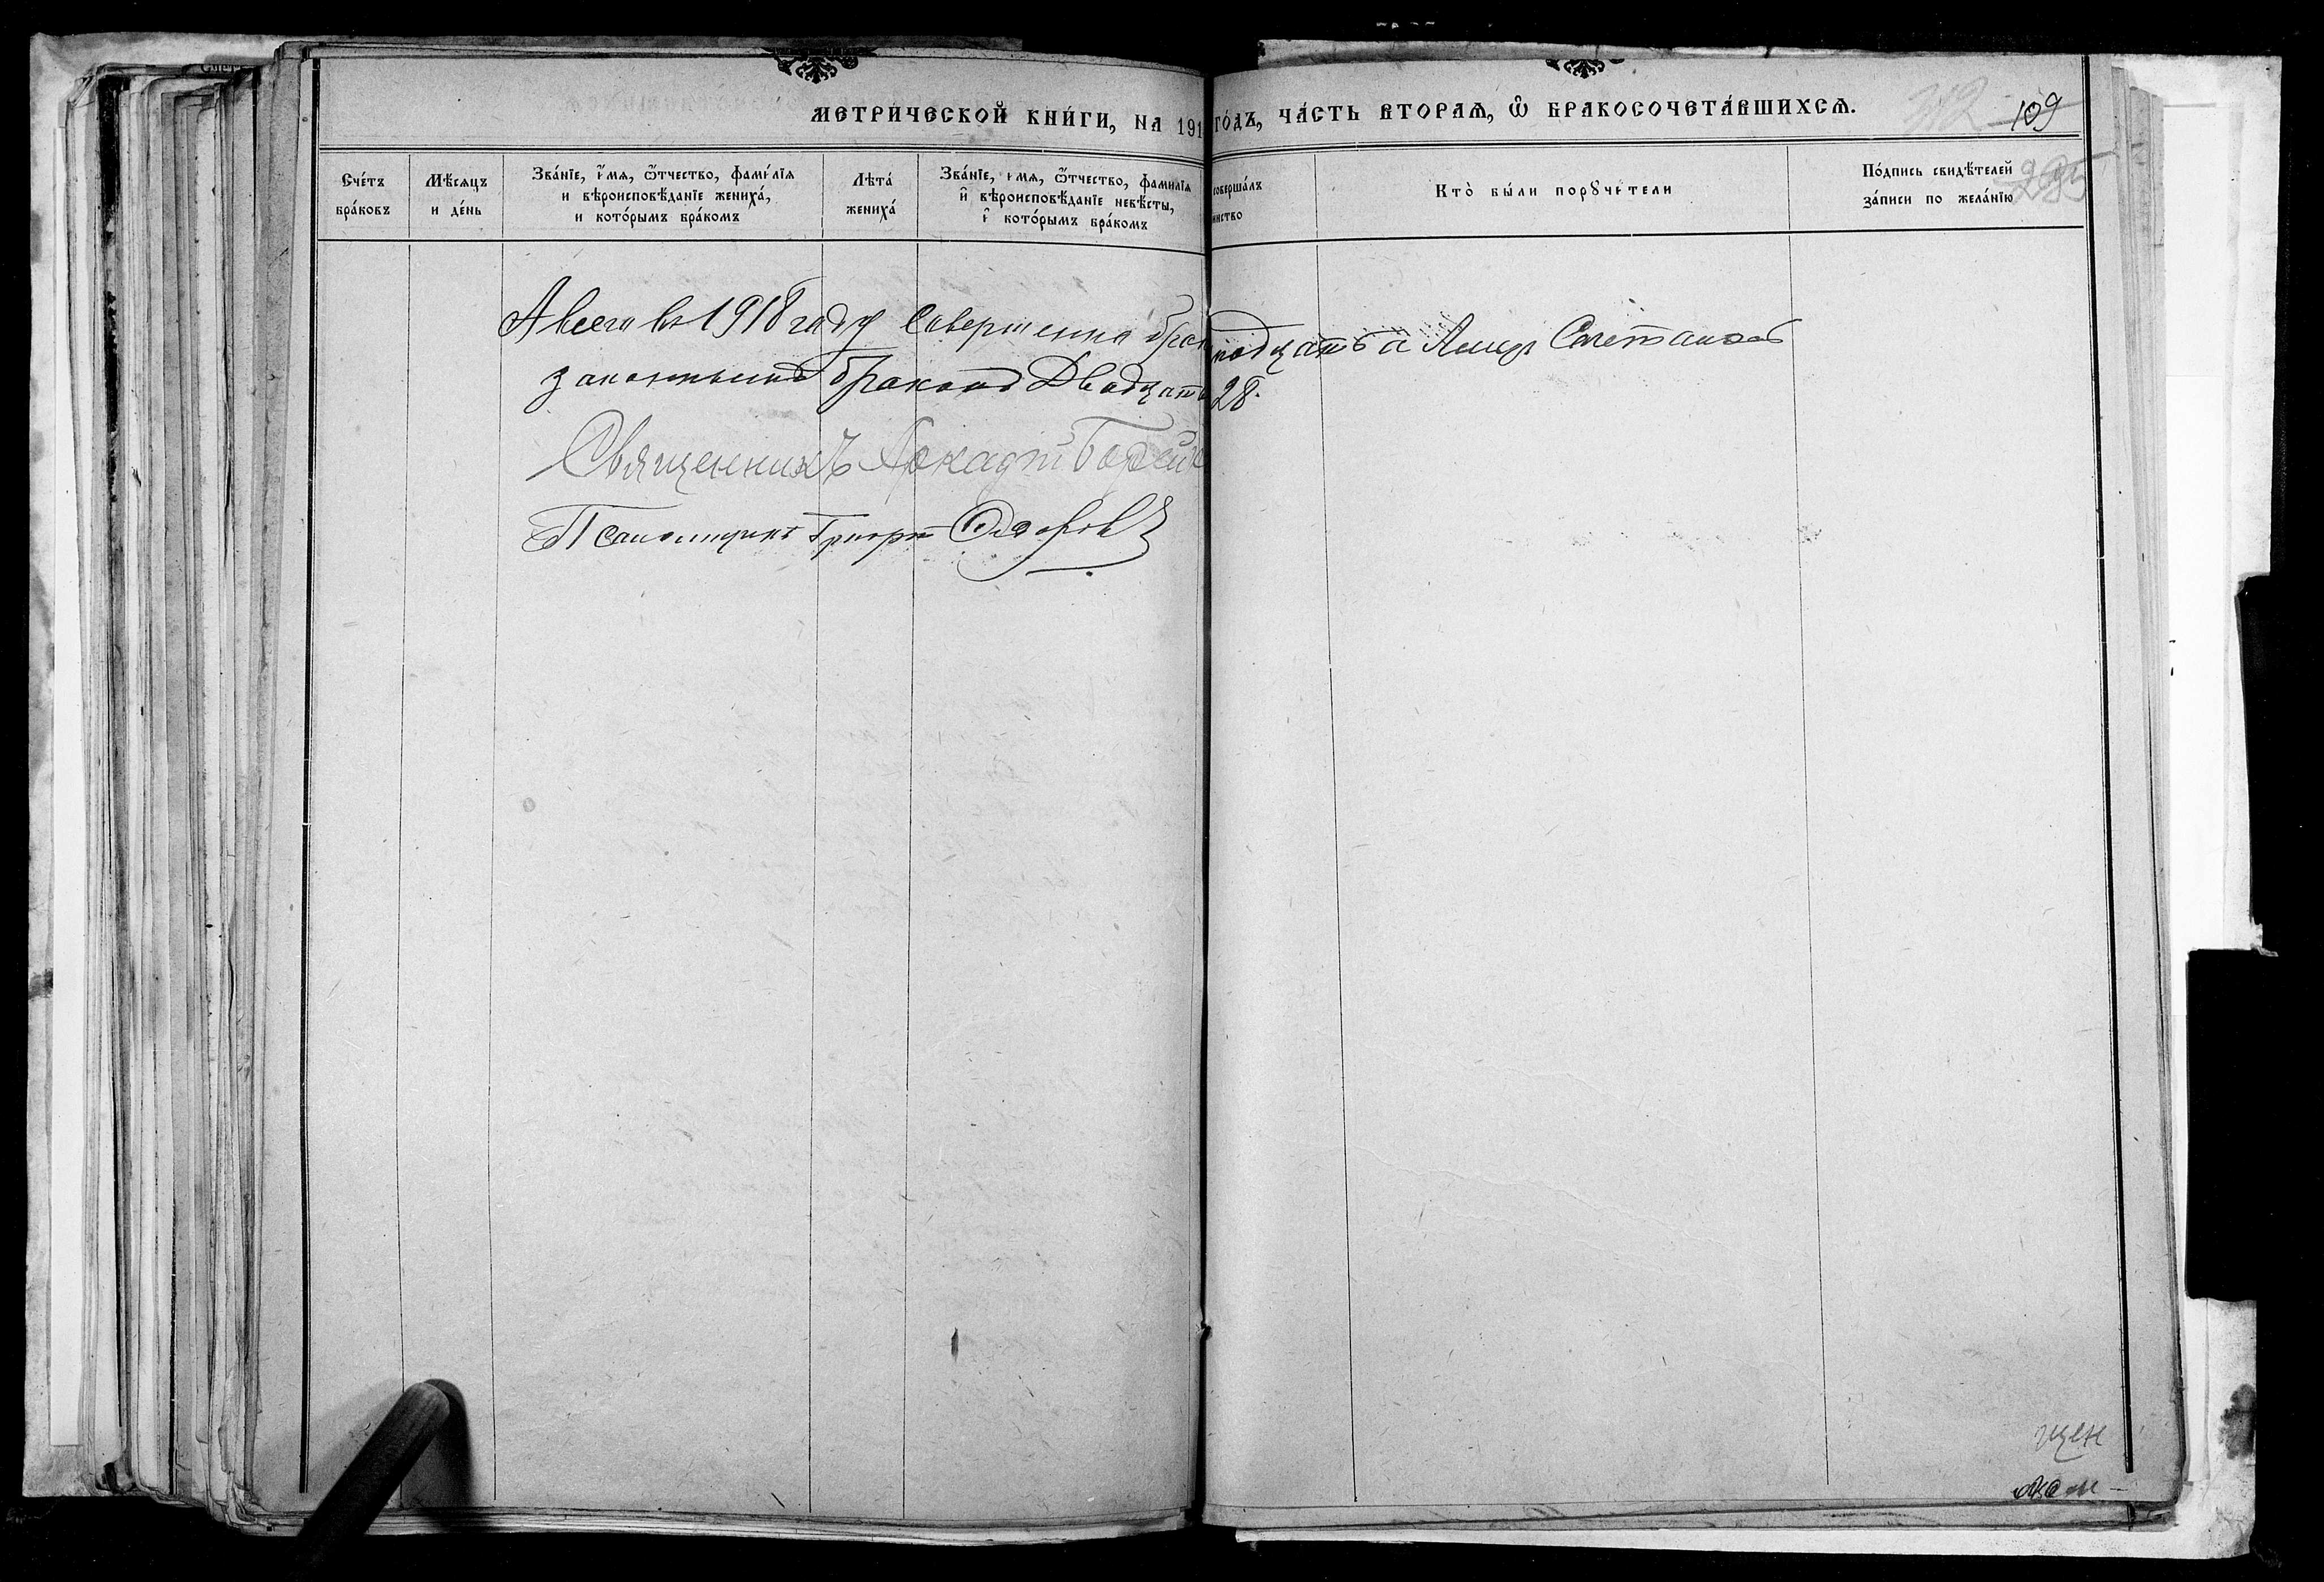 МЕТРИ́ЧЕСКОЙ КНИ́ГИ, НА 191
ГО́ДЪ, ЧА́СТЬ ВТОРАѦ, Ѡ҆ БРАКОСОЧЕТА́ВШИХСѦ.
109
295
Сче́тъ бра́ковъ
Мѣ́сяцъ и де́нь
Зва́нїе, и҆́мѧ, ѻ҆́тчество, фами́лїѧ
и вѣроисповѣ́данїе жениха́,
и кото́рымъ бра́комъ
Лѣта́ жениха́
Зва́нїе, и҆́мѧ, ѻ҆́тчество, фами́лїѧ
и҆ вѣроисповѣ́данїе невѣ́сты,
и҆ кото́рымъ бра́комъ
соверша́лъ
инство
Кто̀ бы́ли порꙋчи́тели
По́дпись свидѣ́телей
за́писи по жела́нїю
А всего въ 1918 году совершено брак
надцать а лицъ
законнымъ бракомъ Двадцать
28.
Священникъ Аркадій
Псаломщикъ